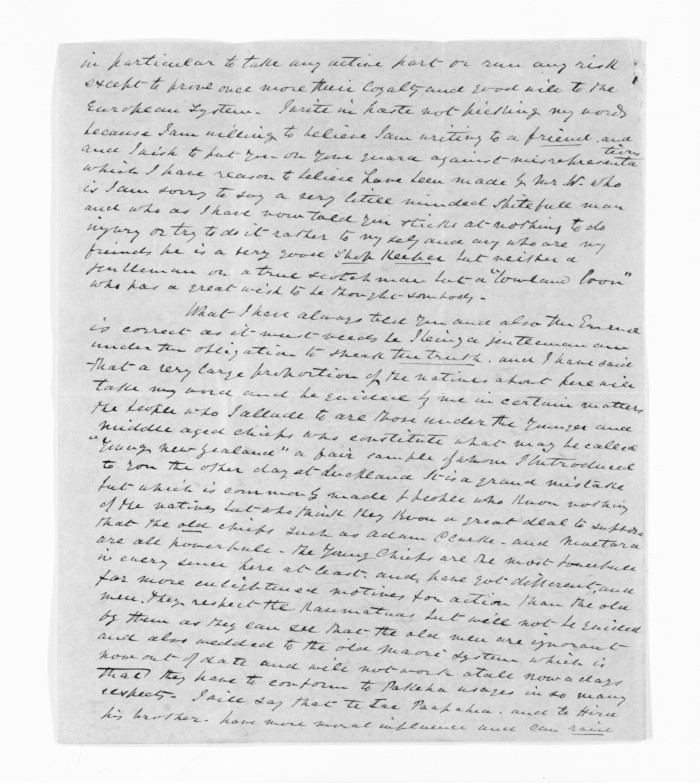 in particular to take any active part or run any risk
except to prove once more their loyalty and good will to the
European System. I write in haste not picking my words
because I am willing to believe I am writing to a friend and
and I wish to put you on your guard against misrepresenta
tions
which I have reason to believe have been made by Mr. W. who
is I am sorry to say a very little minded spitefull man
and who as I have now told you sticks at nothing to do
injury or try to do it rather to myself and any who are my
friends he is a very good Shop Keeper but neither a
gentleman or a true scotchman but a "Lowland Loon"
who has a great wish to be thought somebody -
What I have always told you and also the
is correct as it must needs be I being a gentleman am
under the obligation to speak the truth. and I have said
that a very large proportion of the natives about here will
take my word and be guided by me in certain matters
the people who I allude to are those under the younger and
middle aged chiefs who constitute what may be called
"Young new zealand" a fair sample of whom I introduced
to you the other day at Auckland It is a grand mistake
but which is commonly made by people who know nothing
of the natives but who think they know a great deal to suppose
that the old chiefs such as Adam Clarke - and Moetara
are all powerfull - the Young Chiefs are the most powerfull
in every sense here at least. and have got different and
far more enlightened motives for action than the old
men. they respect the Kaumatuas but will not be guided
by them as they can see that the old men are ignorant
and also wedded to the old maori system which is
now out of date and will not work at all now a days
that they have to conform to Pakeha usages in so many
respects. I will say that te Tae Papahia. and te Hira
his brother. have more moral influence and can raise